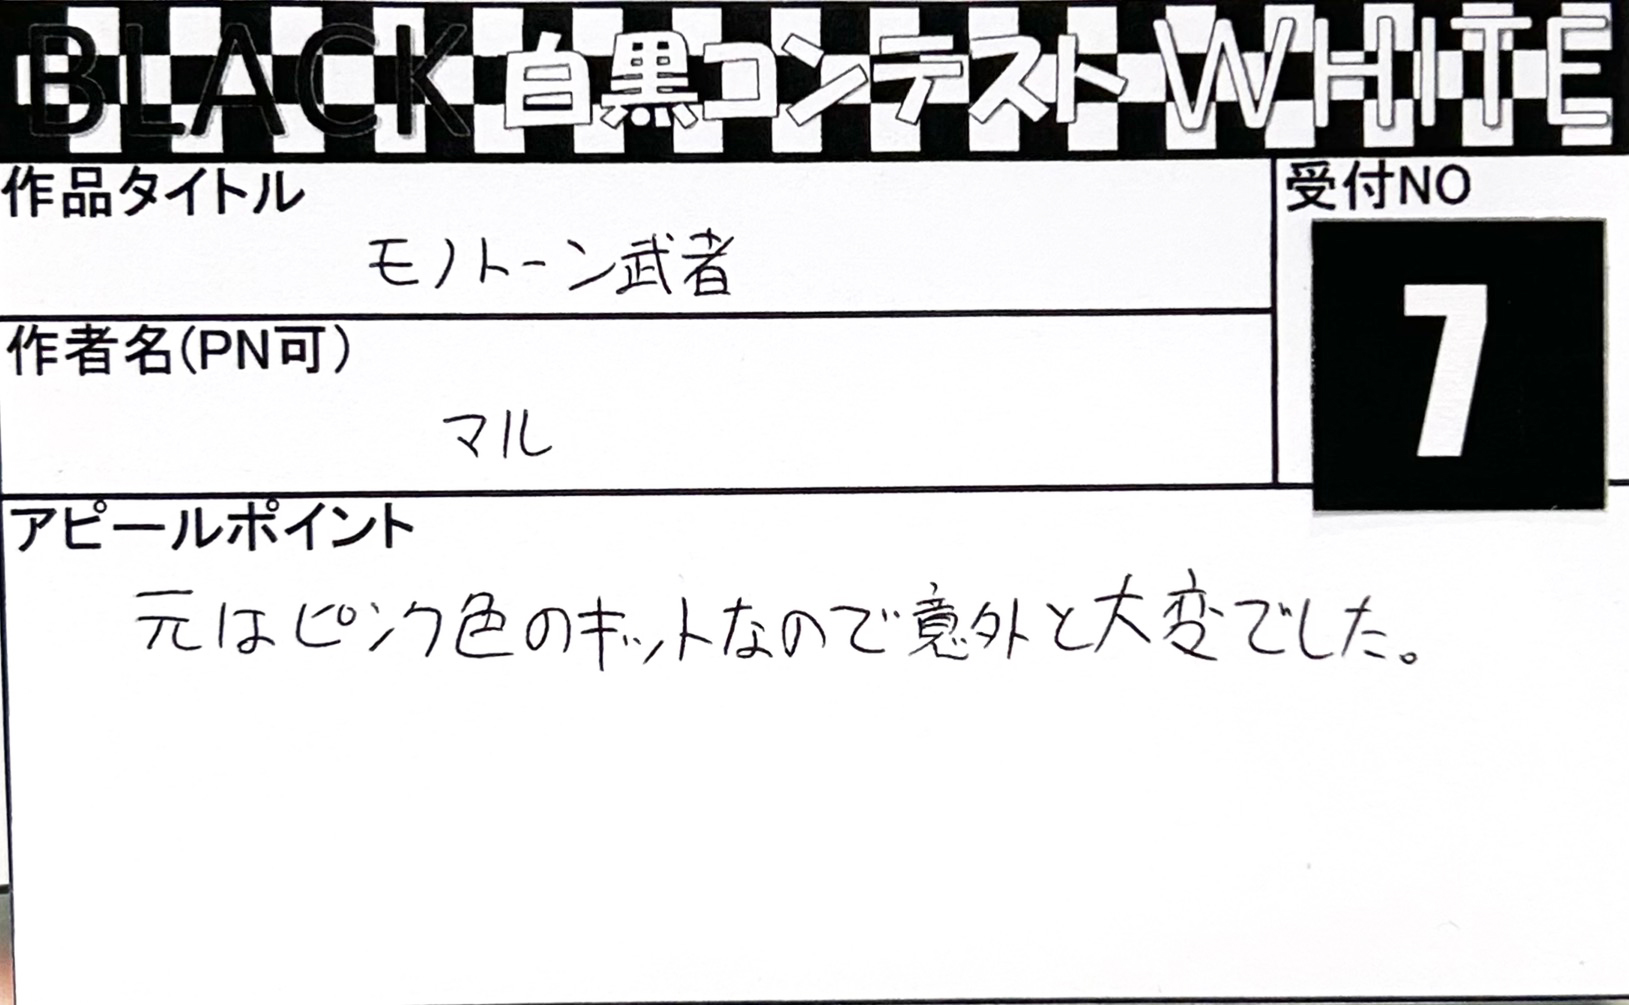 BLACK 白黒コンテスト WHITE
作品タイトル
モノトーン武者
受付NO
7
作者名(PN可)
マル
アピールポイント
元はピンク色のキットなので意外と大変でした。